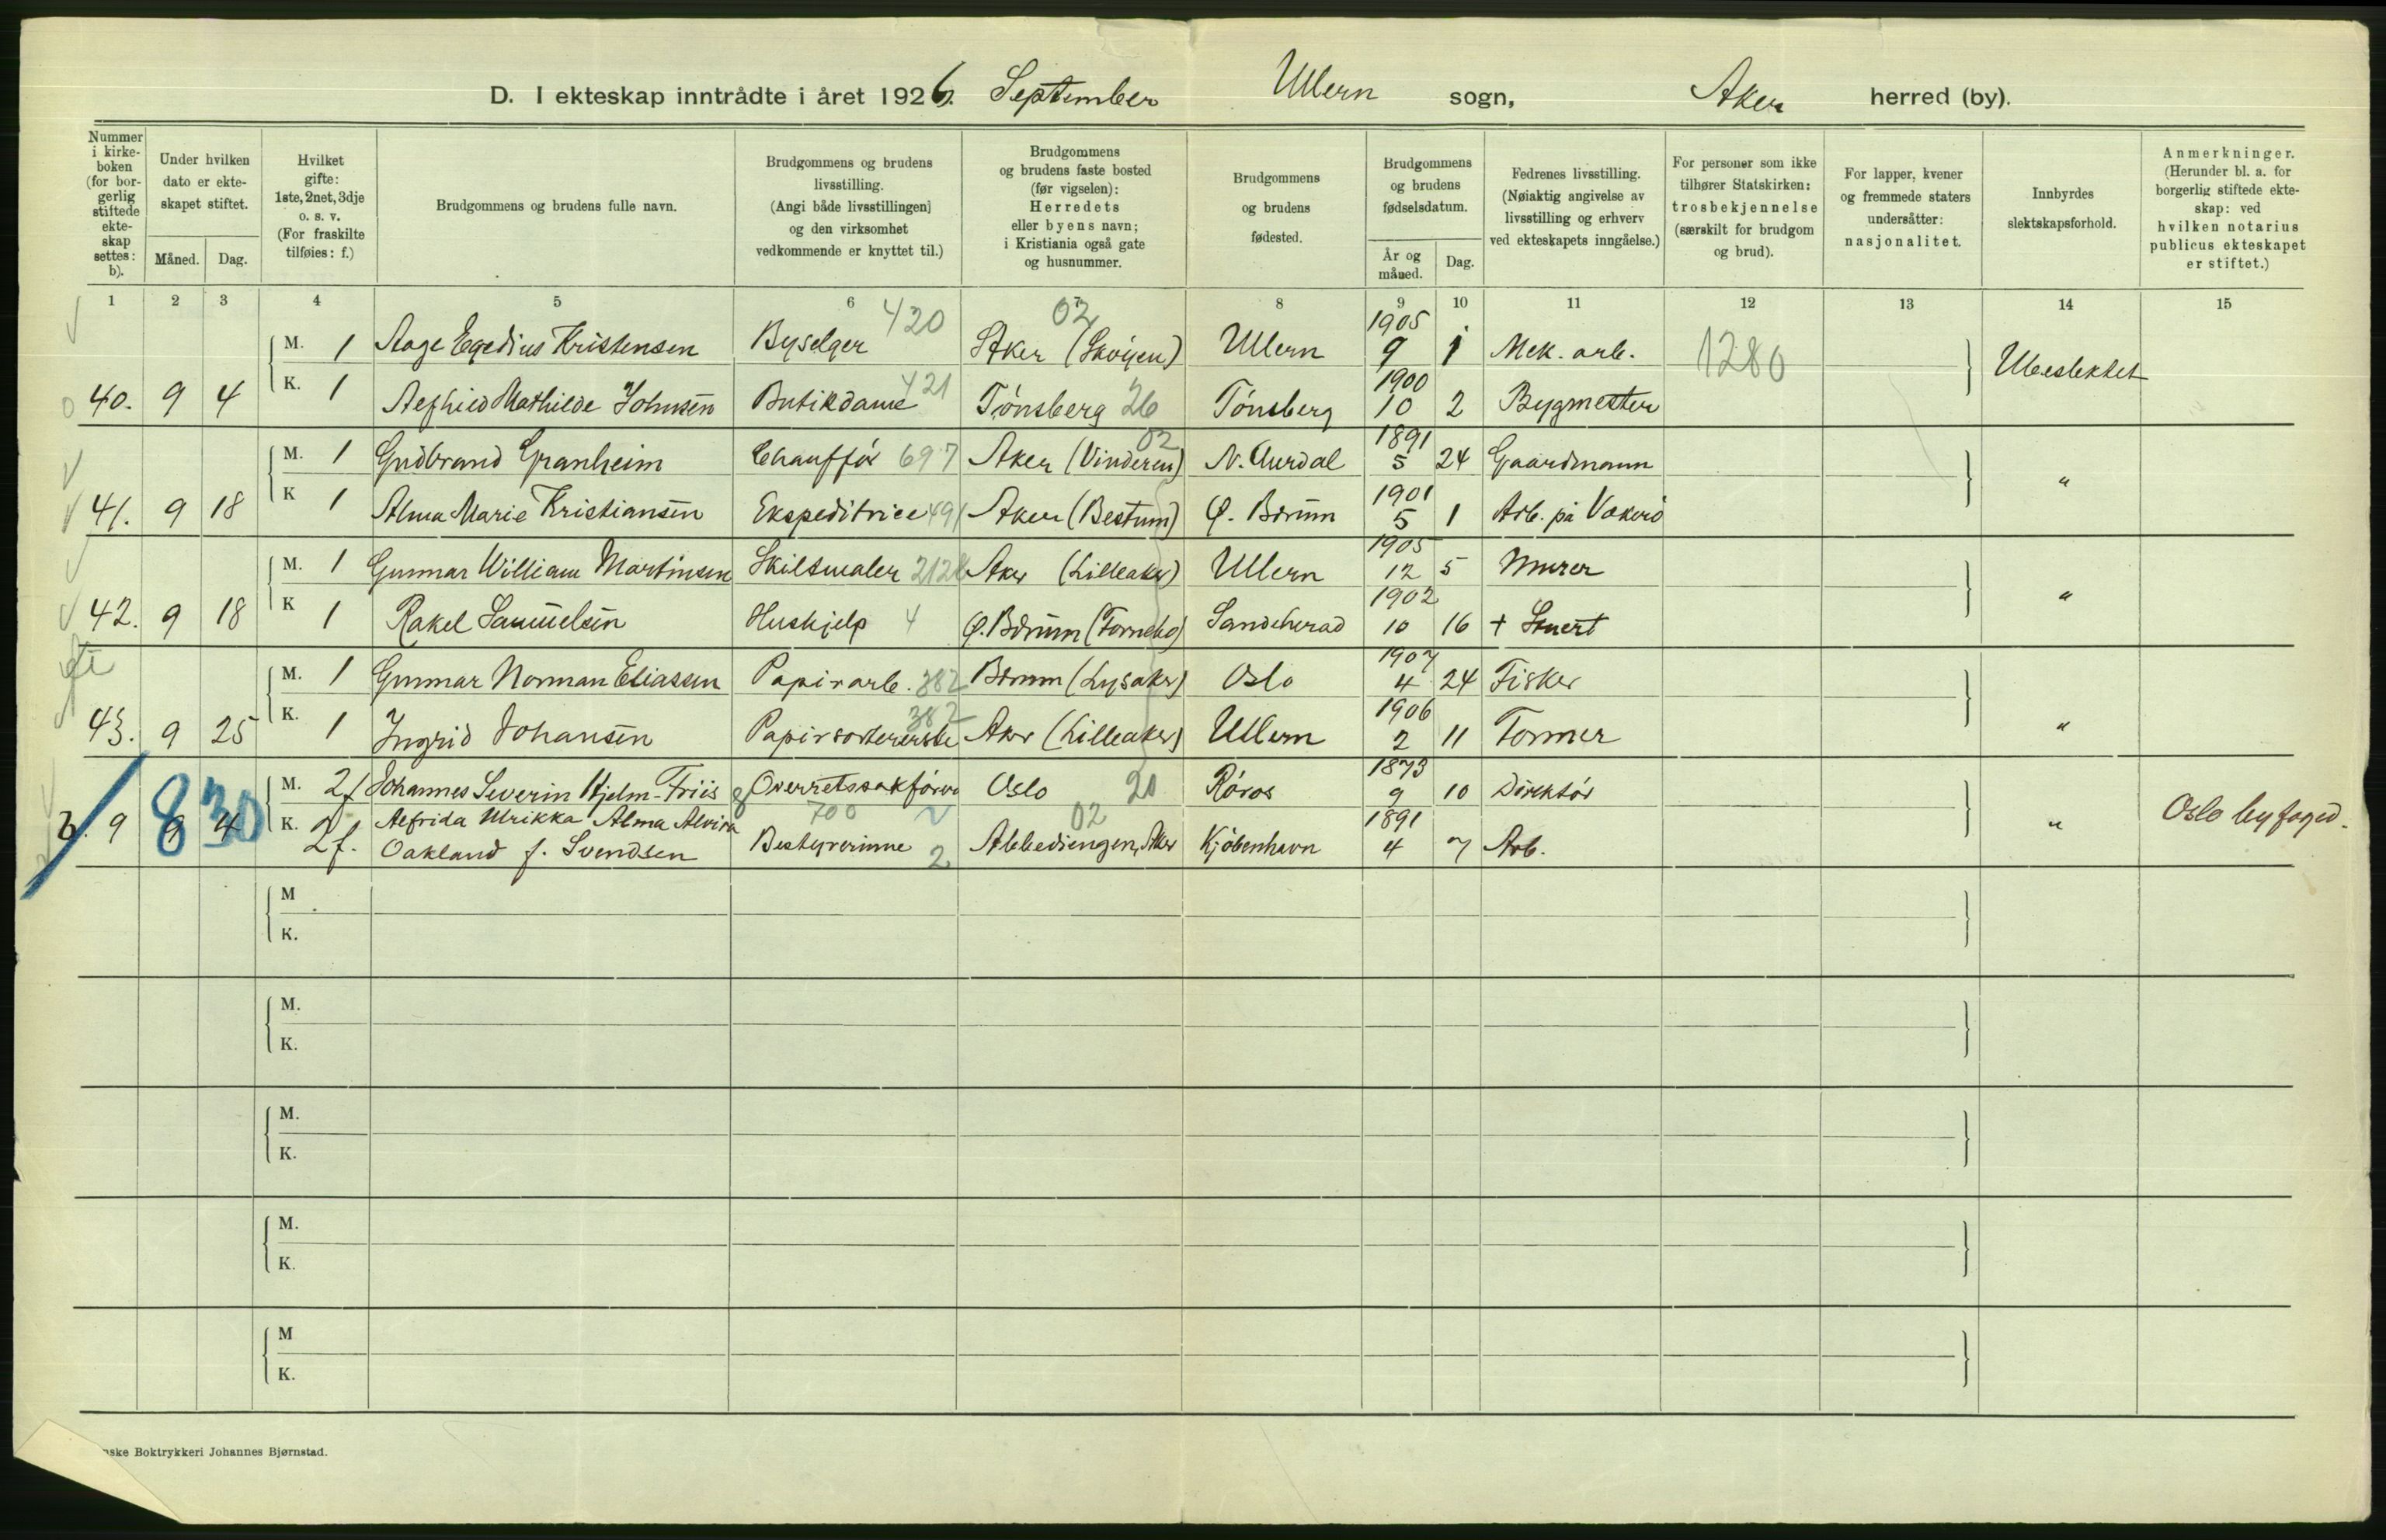 D. I ekteskap inntrådte i året 1926. September Ullern sogn, Aker herred (by).
Nummer i kirke-boken (for bor-gerlig stiftede ekte-skap settes: b).
Under hvilken dato er ekte-skapet stiftet.
Måned. Dag.
Hvilket gifte: 1ste, 2net, 3dje o. s. v. (For fraskilte tilføies: f.)
Brudgommens og brudens fulle navn.
Brudgommens og brudens livsstilling. (Angi både livsstillingen] og den virksomhet vedkommende er knyttet til.)
Brudgommens og brudens faste bosted (før vigselen): Herredets eller byens navn; i Kristiania også gate og husnummer.
Brudgommens og brudens fødested.
Brudgommens og brudens fødselsdatum.
År og måned. Dag.
Fedrenes livsstilling. (Nøiaktig angivelse av livsstilling og erhverv ved ekteskapets inngåelse.)
For personer som ikke tilhører Statskirken: trosbekjennelse (særskilt for brudgom og brud).
For lapper, kvener og fremmede staters undersåtter: nasjonalitet.
Innbyrdes slektskapsforhold.
Anmerkninger. (Herunder bl. a. for borgerlig stiftede ekte-skap: ved hvilken notarius publicus ekteskapet er stiftet.)
1 2 3 4 5 6 7 8 9 10 11 12 13 14 15
M. 1 Aage Egedius Kristensen Byselger 420 Aker (Skøyen) 02 Ullern 1905 9 1 Mek. arb. 1280
40. 9 4 K. 1 Mathilde Johnsen Butikdame 421 Tønsberg 26 Tønsberg 1900 10 2 Bygmester Ubeslektet
M. 1 Gudbrand Granheim Chauffør 697 Aker (Vinderen) 02 N. Aurdal 1891 5 24 Gaardmann
41. 9 18 K 1 Alma Marie Kristiansen Ekspeditrice 491 Aker (Bestum) Ø. Bærum 1901 5 1 Arb. på Vækerø "
M. 1 Gunnar William Martinsen Skiltmaler 212 Aker (Lilleaker) Ullern 1905 12 5 Murer
42. 9 18 K 1 Rakel Samuelsen Hushjelp 4 Ø. Bærum (Fornebo) Sandeherad 1902 10 16 + "
M. 1 Gunnar Norman Eliassen Papirarb. 382 Bærum (Lysaker) Oslo 1907 4 24 Fisker
43. 9 25 K. 1 Ingrid Johansen Papirsortererske 382 Aker (Lilleaker) Ullern 1906 2 11 Former "
M. 2f Johannes Severin Hjelm-Friis Overretssakfører Oslo 20 Røros 1873 9 10 Direktør
b. 9 9 4 830 K. 2f. Alfrida Ulrikka Alma Alvira
Oakland f. Svendsen Bestyrerinne 700 2 Abbediengen, Aker 02 Kjøbenhavn 1891 4 7 Arb. " Oslo byfoged.
M
K.
M.
K.
M.
K.
M.
K.
M
K.
nske Boktrykkeri Johannes Bjørnstad.